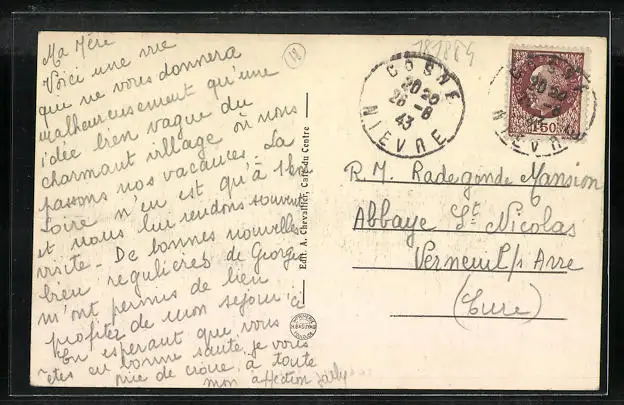 Ma Mère
Voici une vue
que ne vous donnera
malheureusement qu'une
idée bien vague du
charmant village où nous
passons nos vacances. La
Loire n'en est qu'à 1km
et nous lui rendons souvent
visite - De bonnes nouvelles
bien régulières de Georges
m'ont permis de bien
profiter de mon séjour ici
En espérant que vous
êtes en bonne santé je vous
prie de croire à toute
mon affection
18
Edit. A. Chevallier, Café du Centre
181884
COSNE
20 20
26 - 8
43
NIEVRE
COSNE
NIEVRE
1F50
R. M. Radegonde Mansion
Abbaye St Nicolas
Verneuil s/ Avre
(Eure)